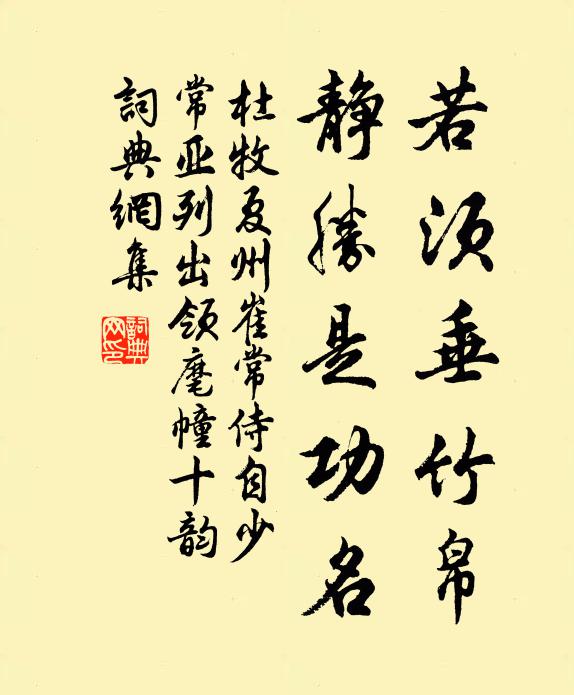 若須垂竹帛
靜勝是功名
杜牧夏州崔常侍自少
常亚列出领麾幢十韵
詞典網集
詞典網印